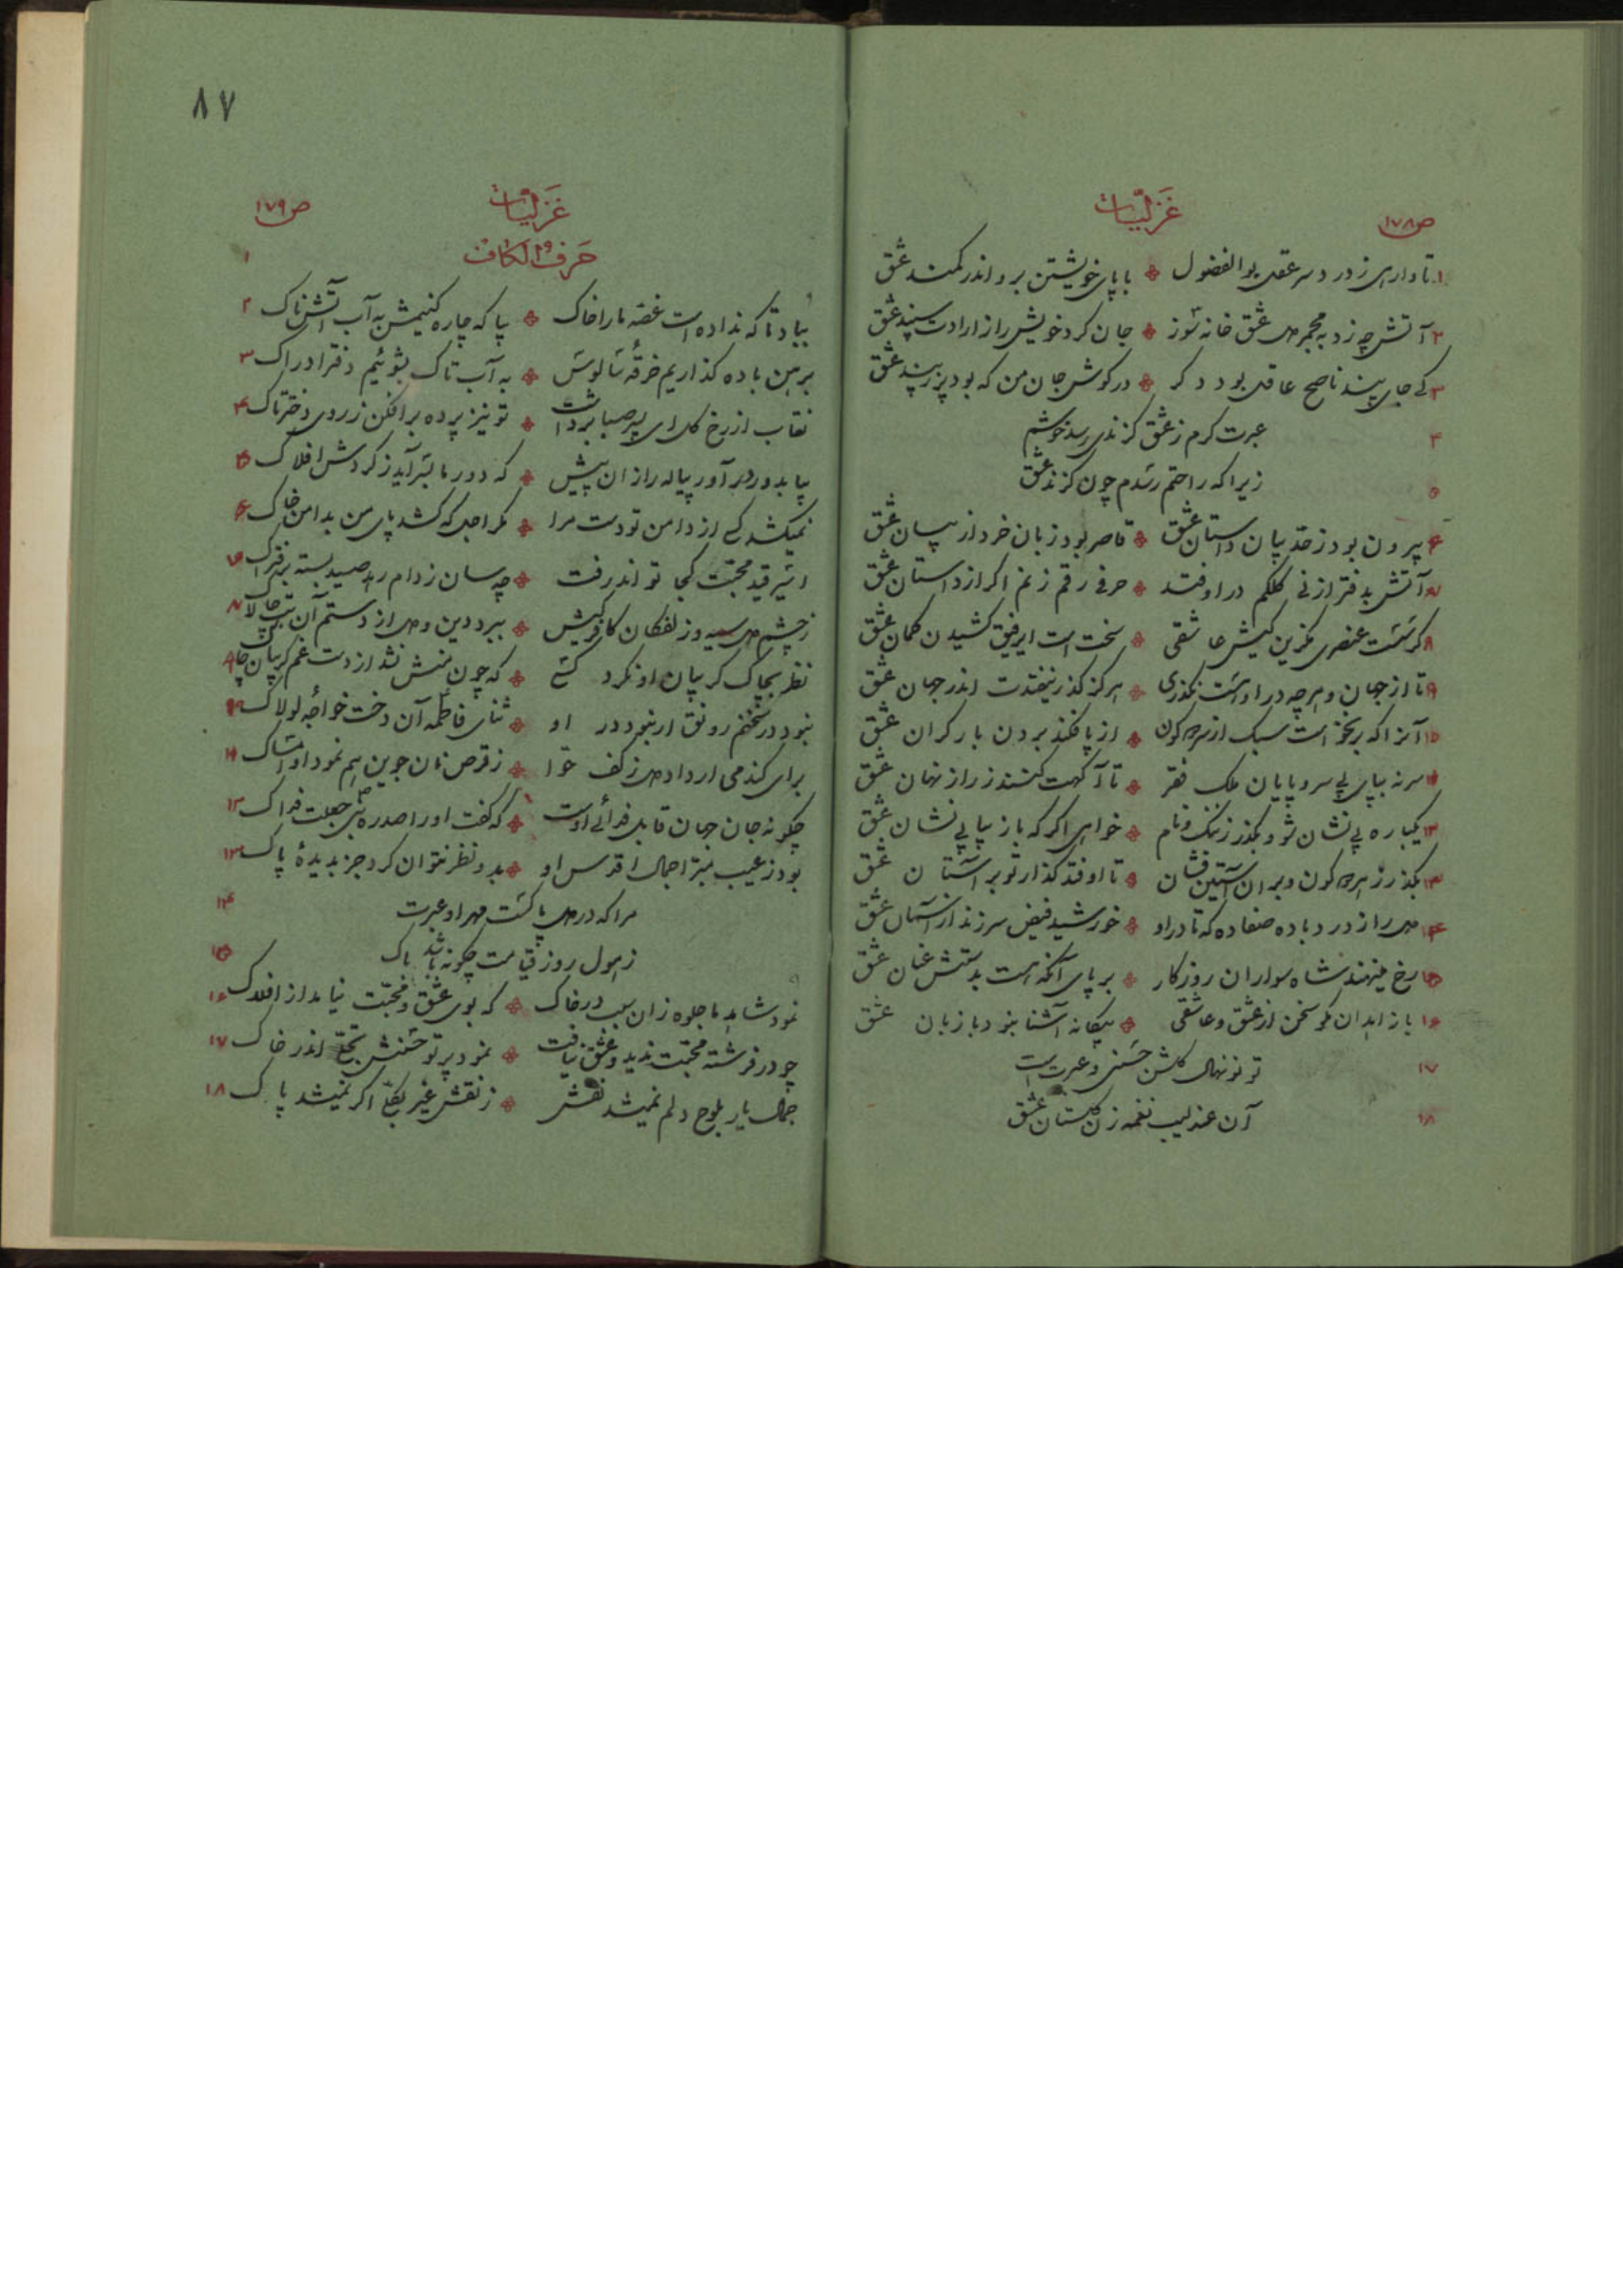 ص۱۷۸
غزلیّات
۱ تا وارهی ز درد سر عقل بوالفضول * با پای خویشتن برو اندر کمند عشق
۲ آتش چه زد به مجمر دل عشق خانه سوز * جان کرد خویش را ز ارادت سپند عشق
۳ کی جای پند ناصح عاقل بود دگر * در گوش جان من که بود پر ز پند عشق
۴ عبرت گرم ز عشق گزندی رسد خوشم
۵ زیرا که راحتم رسدم چون گزند عشق
۶ بیرون بود ز حد بیان داستان عشق * قاصر بود زبان خرد از بیان عشق
۷ آتش بدفتر از نی کلکم در اوفتد * حرفی رقم زنم اگر از داستان عشق
۸ گر سست عنصری مگزین کیش عاشقی * سخت است ای رفیق کشیدن کمان عشق
۹ تا از جهان و هر چه در او هست نگذری * هرگز گذر نیفتدت اندر جهان عشق
۱۰ آنرا که برنخواست سبک از سر دو کون * از پا فکند بردن بار گران عشق
۱۱ سر نه بپای بی سر و پایان ملک فقر * تا آگهت کنند ز راز نهان عشق
۱۲ یکباره بی نشان شو و بگذر ز ننگ و نام * خواهی اگر که باز بیابی نشان عشق
۱۳ بگذر ز هر دو کون و بر آن آستین فشان * تا اوفتد گذار تو بر آستان عشق
۱۴ دل را ز درد باده صفا ده که تا در او * خورشید فیض سر زند از آسمان عشق
۱۵ رخ مینهند شاه سواران روزگار * بر پای آنکه هست بدستش عنان عشق
۱۶ با زاهدان مگو سخن از عشق و عاشقی * بیگانه آشنا نبود با زبان عشق
۱۷ تو نونهال گلشن حسنی و عبرت است
۱۸ آن عندلیب نغمه زن گلستان عشق
۸۷
ص۱۷۹
غزلیّات
حرف الکاف
۱
بیاد تا که نداده است غصه ما را خاک * بیا که چاره کنیمش به آب آتشناک ۲
برهن باده گذاریم خرقهٔ سالوس * به آب تاک بشوئیم دفتر ادراک ۳
نقاب از رخ گل ای پسر صبا برداشت * تو نیز پرده برافکن ز روی دختر تاک ۴
بیا بدور در آور پیاله را زان پیش * که دور ما بسر آید ز گردش افلاک ۵
نمیکشد کسی از دامن تو دست مرا * مگر اجل که کشد پای من بدامن خاک ۶
اسیر قید محبّت کجا تواند رفت * چه سان ز دام رهد صید بسته بر فتراک ۷
ز چشم دل سیه و زلفکان کافر کیش * ببرد دین و دل از دستم آن بت چالاک ۸
نظر بچاک گریبان او نکرد کسی * که چون منش نشد از دست غم گریبان چاک ۹
نبود در سخنم رونق ار نبود در او * ثنای فاطمه آن دخت خواجهٔ لولاک ۱۰
برای گندمی ار داد دل ز کف حوا * ز قرص نان جوین هم نمود او امساک ۱۱
چگونه جان جهان قابل فدائی اوست * که گفت او را صد ره نبی جعلت فداک ۱۲
بود ز عیب مبرّا جمال اقدس او * بدو نظر نتوان کرد جز بدیدهٔ پاک ۱۳
مرا که در دل پاکست مهر او عبرت ۱۴
ز هول روز قیامت چگونه باشد باک ۱۵
نمود شاهد ما جلوه زان سبب در خاک * که بوی عشق و محبّت نیامد از افلاک ۱۶
چو در فرشته محبّت ندید و عشق نیافت * نمود پرتو حسنش تجلّی اندر خاک ۱۷
جمال یار بلوح دلم نمیشد نقش * ز نقش غیر بکلّی اگر نمیشد پاک ۱۸